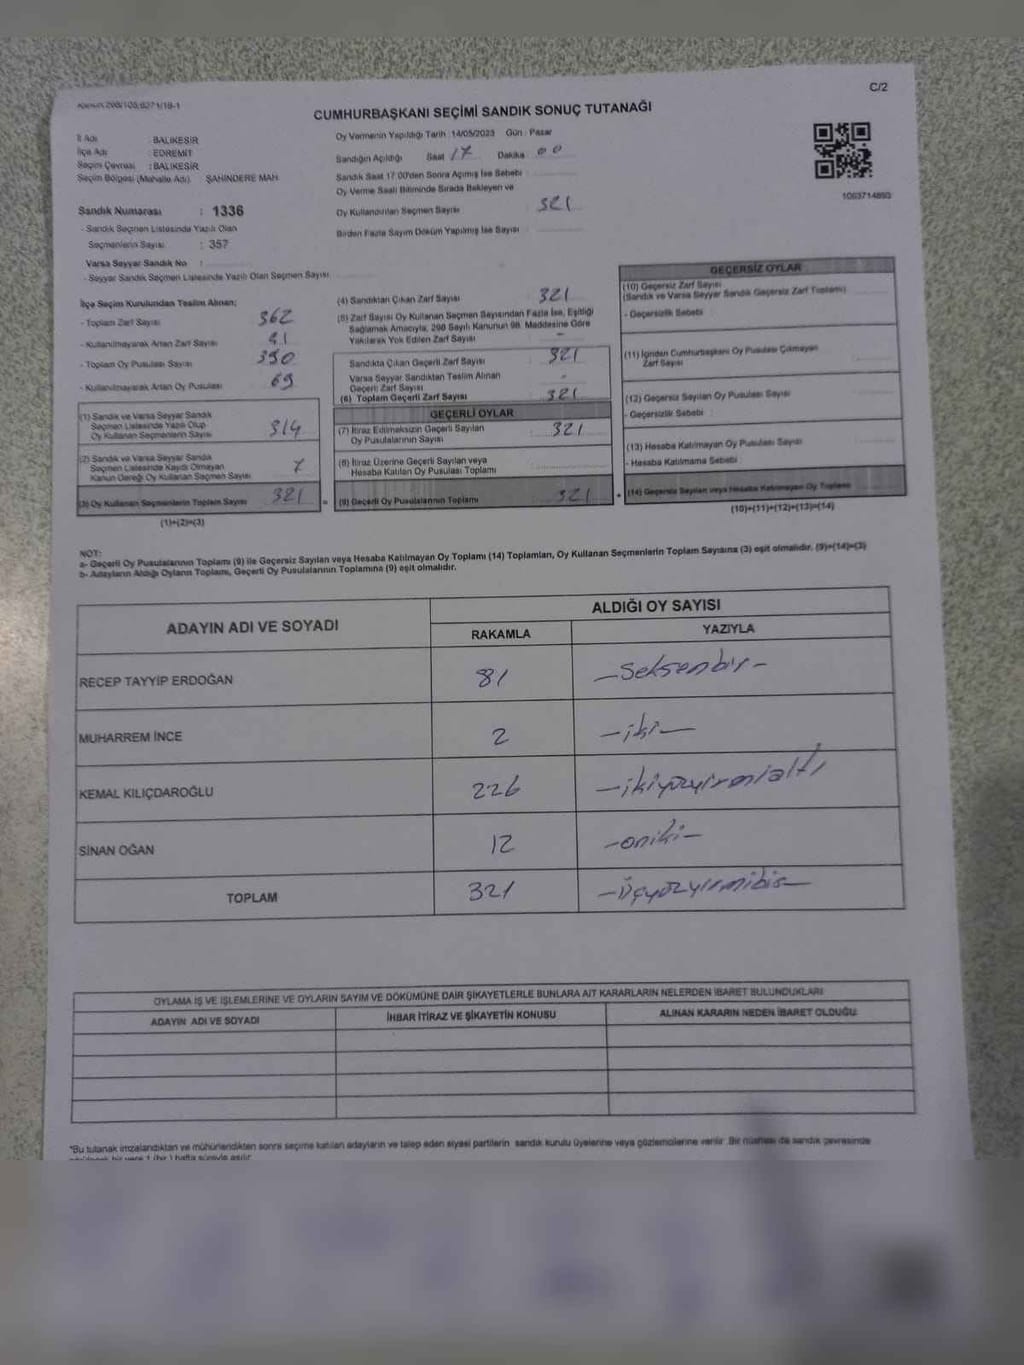 C/2
CUMHURBAŞKANI SEÇİMİ SANDIK SONUÇ TUTANAĞI
İl Adı : BALIKESİR
İlçe Adı : EDREMİT
Seçim Çevresi : BALIKESİR
Seçim Bölgesi (Mahalle Adı) ŞAHİNDERE MAH.
Sandık Numarası : 1336
- Sandık Seçmen Listesinde Yazılı Olan
Seçmenlerin Sayısı : 357
Varsa Seyyar Sandık No :
- Seyyar Sandık Seçmen Listesinde Yazılı Olan Seçmen Sayısı
Oy Vermenin Yapıldığı Tarih : 14/05/2023 Gün : Pazar
Sandığın Açıldığı Saat 17 Dakika 00
Sandık Saat 17:00'den Sonra Açılmış İse Sebebi
Oy Verme Saati Bitiminde Sırada Bekleyen ve
Oy Kullandırılan Seçmen Sayısı 321
Birden Fazla Sayım Döküm Yapılmış İse Sayısı
1063714893
İlçe Seçim Kurulundan Teslim Alınan;
- Toplam Zarf Sayısı 362
- Kullanılmayarak Artan Zarf Sayısı 41
- Toplam Oy Pusulası Sayısı 390
- Kullanılmayarak Artan Oy Pusulası 69
(1) Sandık ve Varsa Seyyar Sandık
Seçmen Listesinde Yazılı Olup
Oy Kullanan Seçmenlerin Sayısı 314
(2) Sandık ve Varsa Seyyar Sandık
Seçmen Listesinde Kaydı Olmayan
Kanun Gereği Oy Kullanan Seçmen Sayısı 7
(3) Oy Kullanan Seçmenlerin Toplam Sayısı 321 =
(1)+(2)=(3)
(4) Sandıktan Çıkan Zarf Sayısı 321
(5) Zarf Sayısı Oy Kullanan Seçmen Sayısından Fazla İse, Eşitliği
Sağlamak Amacıyla, 298 Sayılı Kanunun 98. Maddesine Göre
Yakılarak Yok Edilen Zarf Sayısı -
Sandıkta Çıkan Geçerli Zarf Sayısı 321
Varsa Seyyar Sandıktan Teslim Alınan
Geçerli Zarf Sayısı -
(6) Toplam Geçerli Zarf Sayısı 321
GEÇERLİ OYLAR
(7) İtiraz Edilmeksizin Geçerli Sayılan
Oy Pusulalarının Sayısı 321
(8) İtiraz Üzerine Geçerli Sayılan veya
Hesaba Katılan Oy Pusulası Toplamı
(9) Geçerli Oy Pusulalarının Toplamı 321 +
GEÇERSİZ OYLAR
(10) Geçersiz Zarf Sayısı
(Sandık ve Varsa Seyyar Sandık Geçersiz Zarf Toplamı)
- Geçersizlik Sebebi
(11) İçinden Cumhurbaşkanı Oy Pusulası Çıkmayan
Zarf Sayısı
(12) Geçersiz Sayılan Oy Pusulası Sayısı
- Geçersizlik Sebebi :
(13) Hesaba Katılmayan Oy Pusulası Sayısı
- Hesaba Katılmama Sebebi
(14) Geçersiz Sayılan veya Hesaba Katılmayan Oy Toplamı
(10)+(11)+(12)+(13)=(14)
NOT:
a- Geçerli Oy Pusulalarının Toplamı (9) ile Geçersiz Sayılan veya Hesaba Katılmayan Oy Toplamı (14) Toplamları, Oy Kullanan Seçmenlerin Toplam Sayısına (3) eşit olmalıdır. (9)+(14)=(3)
b- Adayların Aldığı Oyların Toplamı, Geçerli Oy Pusulalarının Toplamına (9) eşit olmalıdır.
ADAYIN ADI VE SOYADI ALDIĞI OY SAYISI
RAKAMLA YAZIYLA
RECEP TAYYİP ERDOĞAN 81 -Seksenbir-
MUHARREM İNCE 2 -iki-
KEMAL KILIÇDAROĞLU 226 -ikiyüzyirmialtı
SİNAN OĞAN 12 -oniki-
TOPLAM 321 -Üçyüzyirmibir-
OYLAMA İŞ VE İŞLEMLERİNE VE OYLARIN SAYIM VE DÖKÜMÜNE DAİR ŞİKAYETLERLE BUNLARA AİT KARARLARIN NELERDEN İBARET BULUNDUKLARI
ADAYIN ADI VE SOYADI İHBAR İTİRAZ VE ŞİKAYETİN KONUSU ALINAN KARARIN NEDEN İBARET OLDUĞU
*Bu tutanak imzalandıktan ve mühürlendikten sonra seçime katılan adayların ve talep eden siyasi partilerin sandık kurulu üyelerine veya gözlemcilerine verilir. Bir nüshası da sandık çevresinde